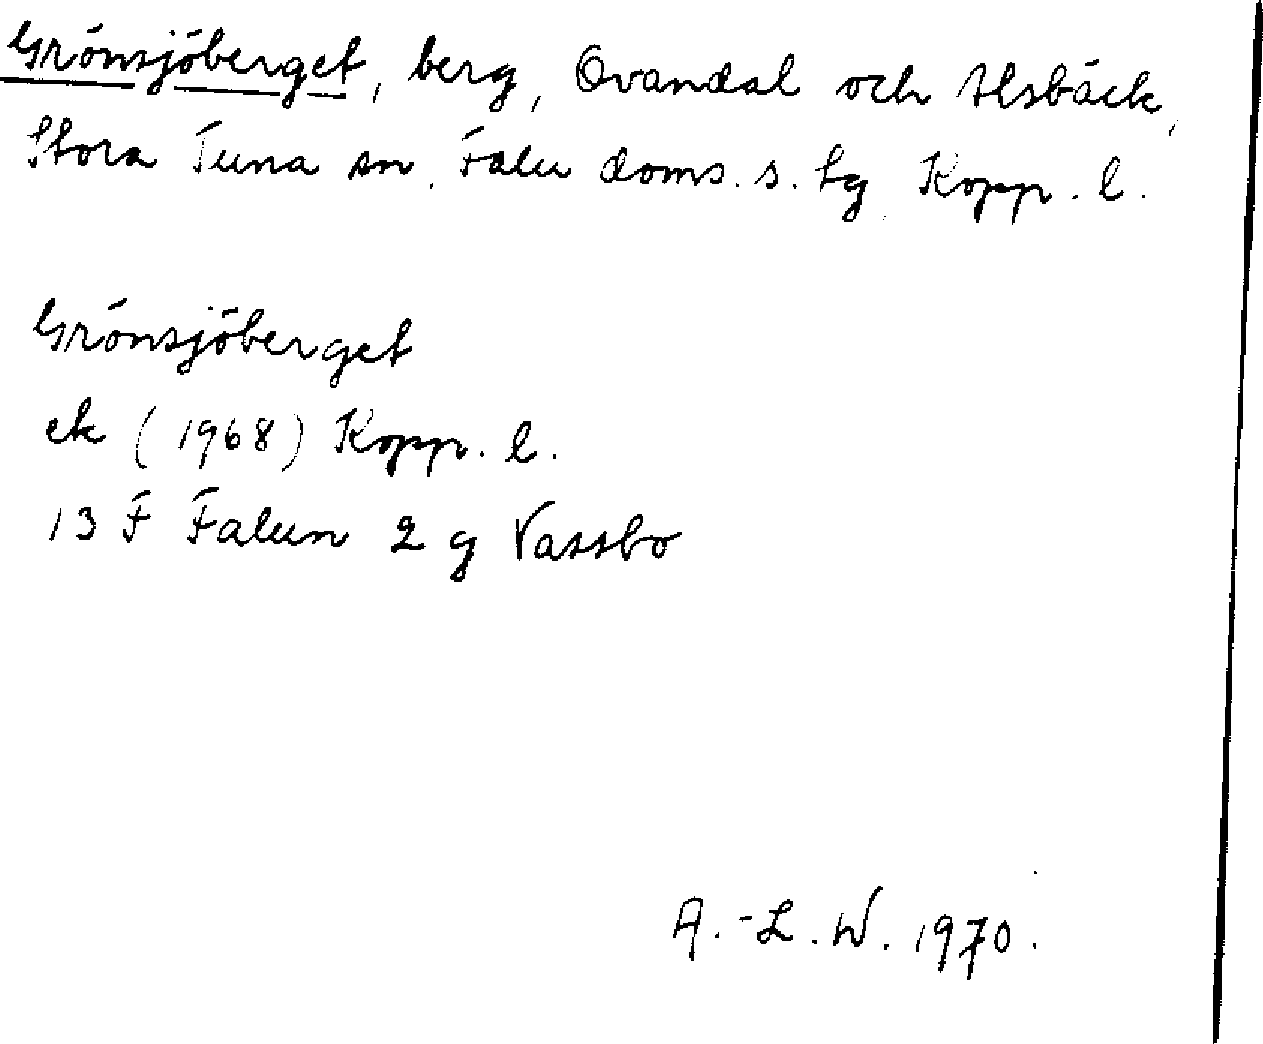 Grönsjöberget, berg, Ovandal och Alsbäck,
Stora Tuna sn, Falu doms. s. tg Kopp. l.
Grönsjöberget
ek (1968) Kopp. l.
13 F Falun 2 g Vassbo
A.-L. W. 1970.